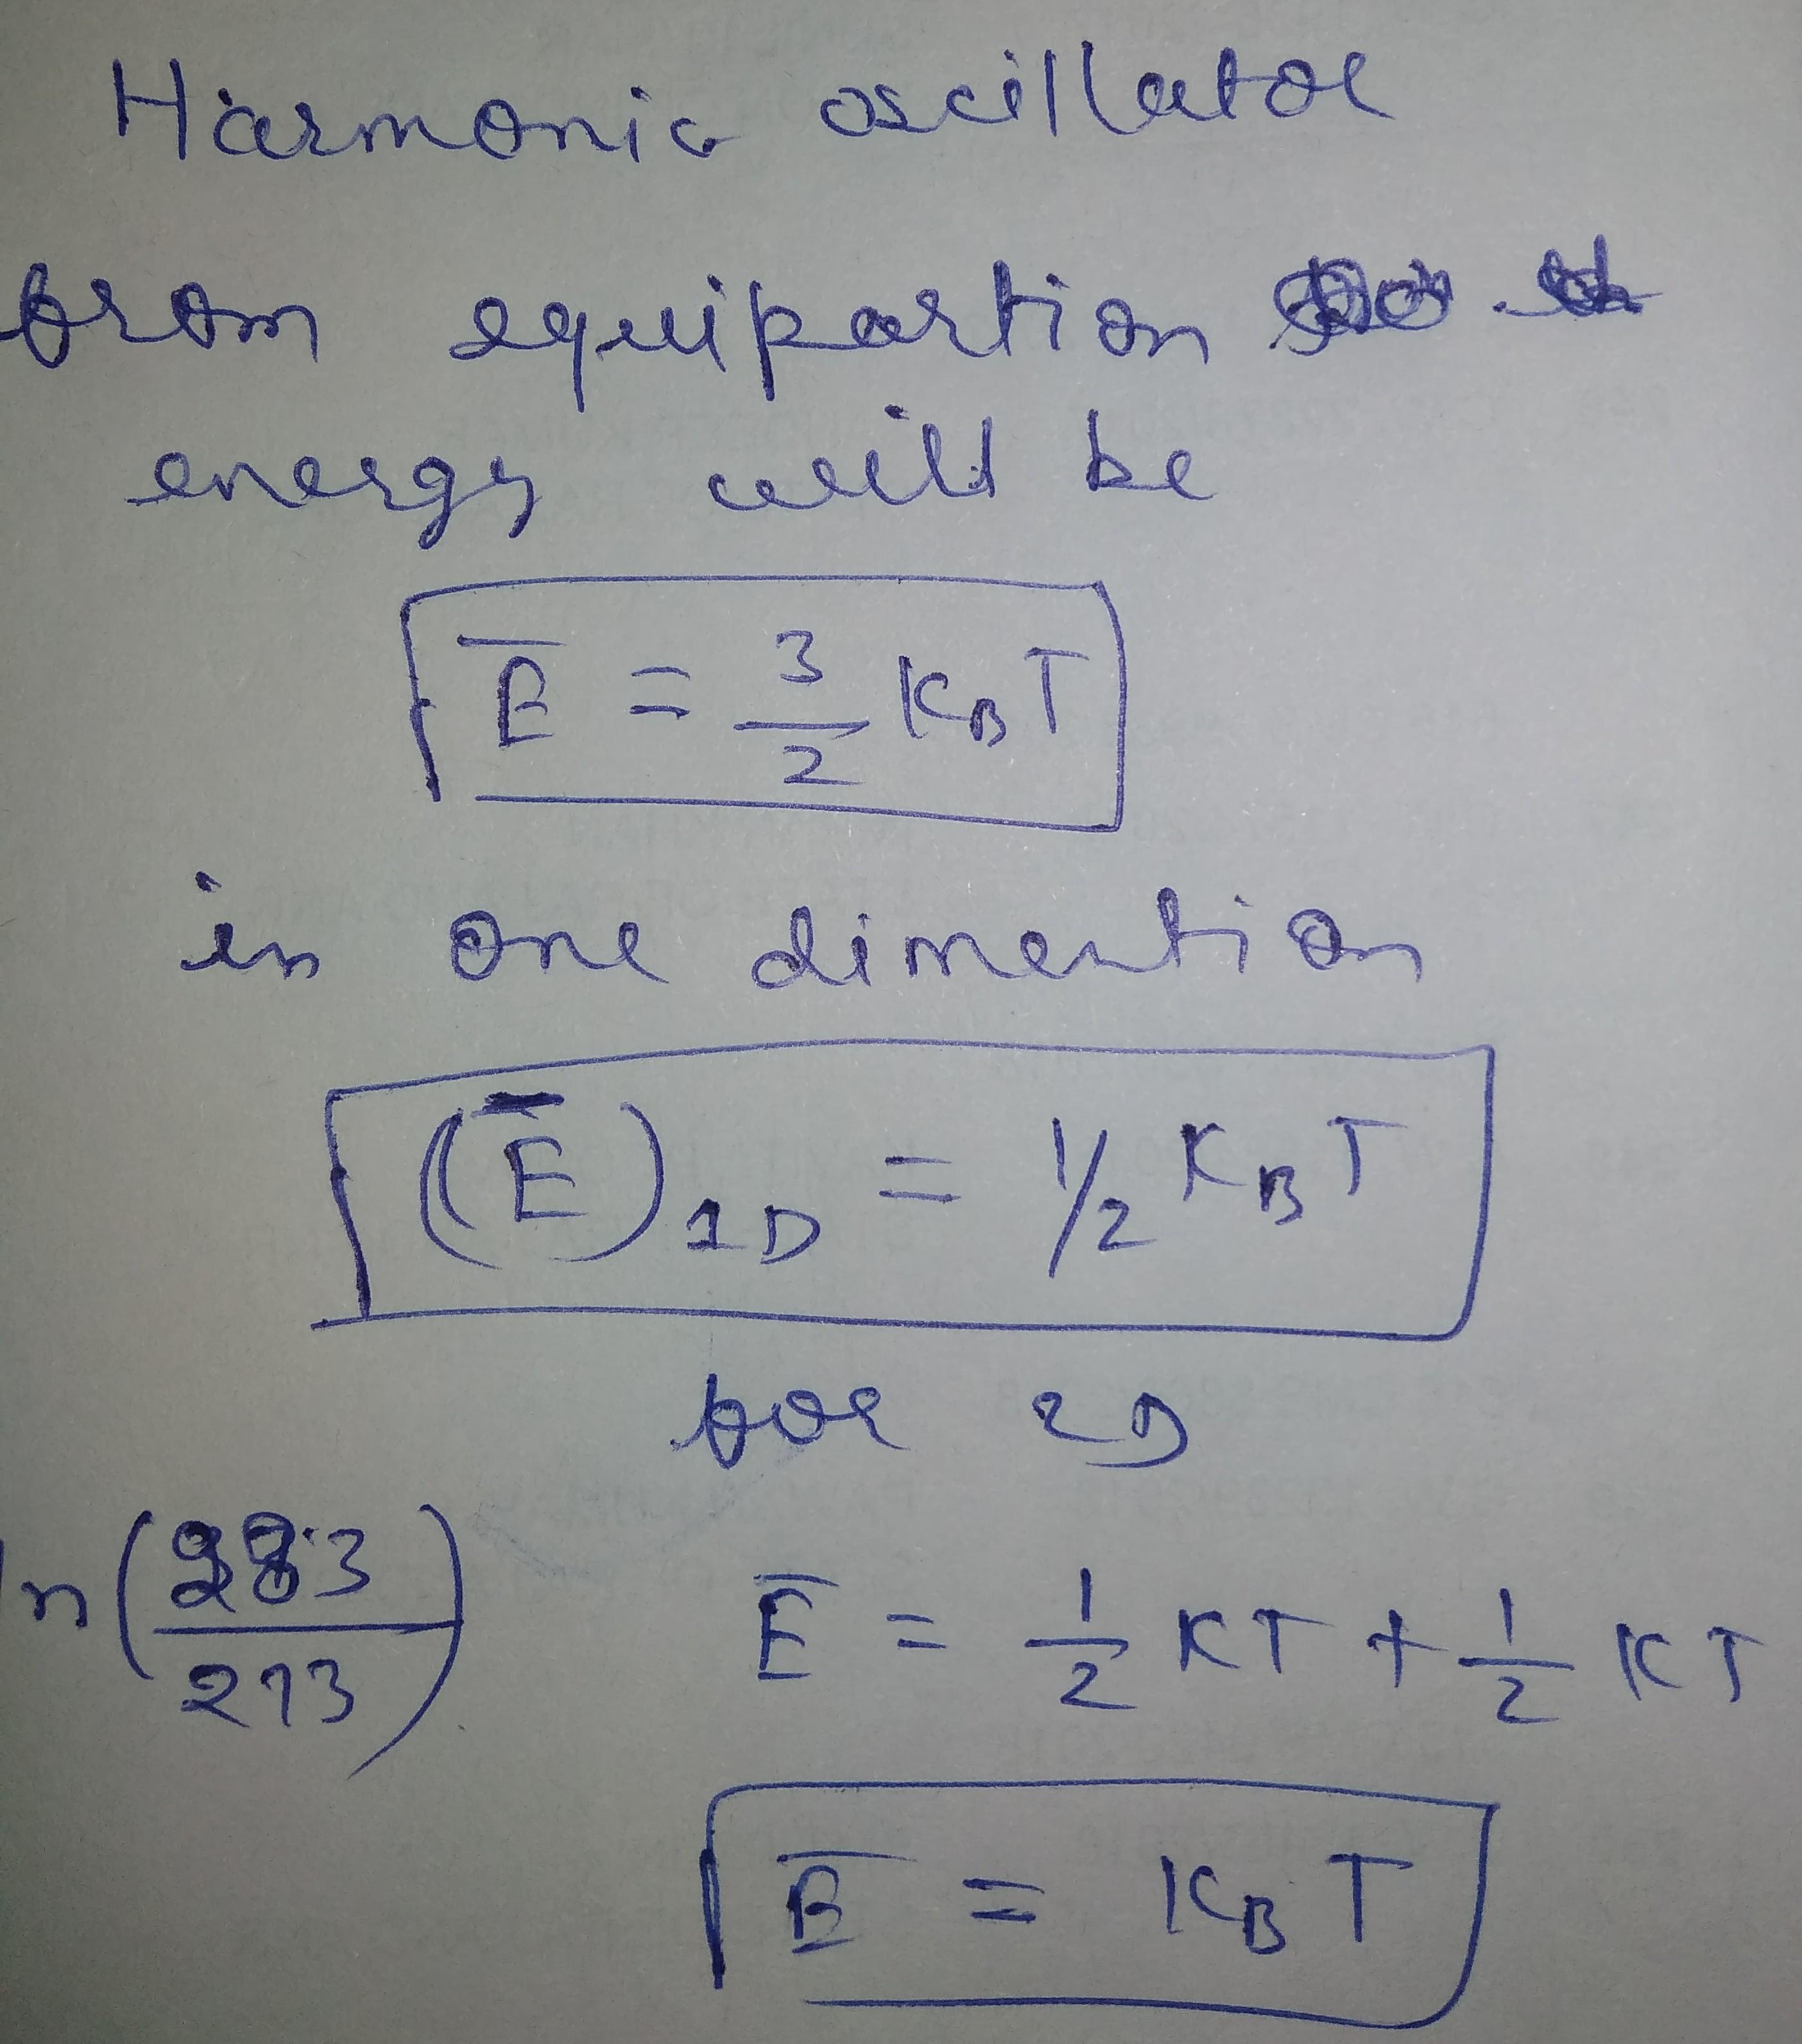 Harmonic oscillator
from equipartion
energy will be
E̅ = 3/2 K_B T
in one dimention
(E̅)_1D = 1/2 K_B T
for 2D
ln(283/273)
E̅ = 1/2 KT + 1/2 KT
E̅ = K_B T